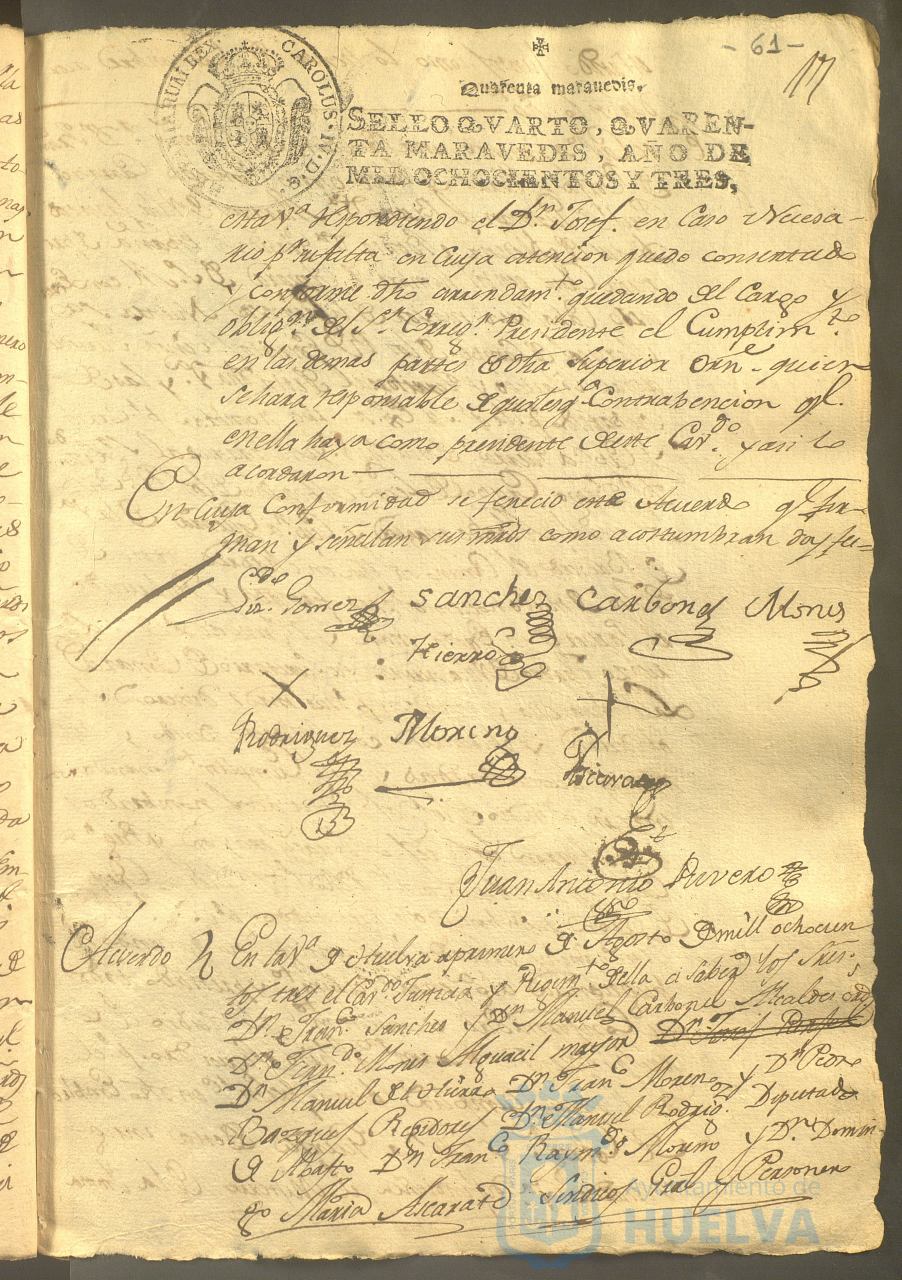 - 61 -
Quarenta maravedis.
SELLO QVARTO, QVAREN-
TA MARAVEDIS, AÑO DE
MIL OCHOCIENTOS Y TRES.
CAROLUS. IV. D. G. HISPANIARUM REX.
esta va. respondiendo el Dn. Josef. en Caso Necesa-
rio pr. su falta en cuya atencion quedo consentido
y conforme dho arrendamto. quedando del Cargo y
obligon. del Sr. Corregr. Presidente el Cumplimto.
en las demas partes de dha Superior Orne. quien
se hara responsable de qualesqa. Contrabencion ql.
en ella haya como presidente de este Cavdo. y asi lo
acordaron —
En cuya Conformidad se fenecio este Acuerdo ql. fir-
man y señellan sus mrds como acostumbran doy fee-
Lizdo. Gomez Sanchez Carbonel Mones
Hierro
Rodriguez Moreno
Juan Antonio Rivero
Acuerdo En la va. de Huelva a primero de Agosto de mill ochocien
tos tres el Cavdo Justicia y Regimto. della a saber los Sres.
Dn. Franco. Sanches y Dn. Manuel Carbonel Alcaldes ords
Dn. Ferndo. Mones Alguacil mayor Dn. Josef
Dn. Manuel de Hierro Dn. Franco. Moreno y Dn. Pedro
Bazques Rexidores Dn. Manuel Rodrigz. Diputado
de Abasto Dn. Franco Raymdo. Moreno y Dn. Domin-
go Maria Alcarad Sindicos Gral y Personero
Ayuntamiento de
HUELVA